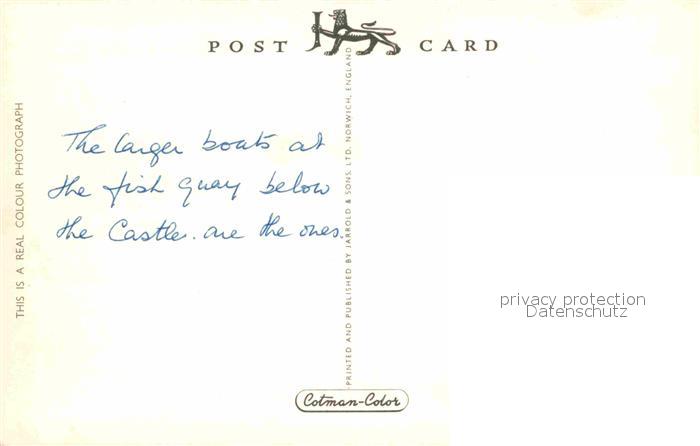 POST CARD
THIS IS A REAL COLOUR PHOTOGRAPH
The larger boats at
the fish quay below
the Castle. are the ones.
PRINTED AND PUBLISHED BY JARROLD & SONS, LTD. NORWICH, ENGLAND
privacy protection
Datenschutz
Cotman-Color